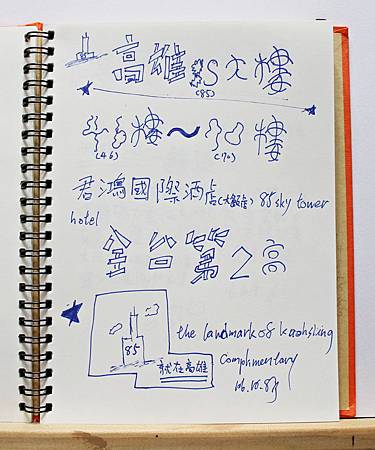 高雄85大樓
(85)
46樓～70樓
(46) (70)
君鴻國際酒店(大飯店) 85 sky tower
hotel
全台第2高
85
就在高雄
the landmark of kaohsiung
Complimentary